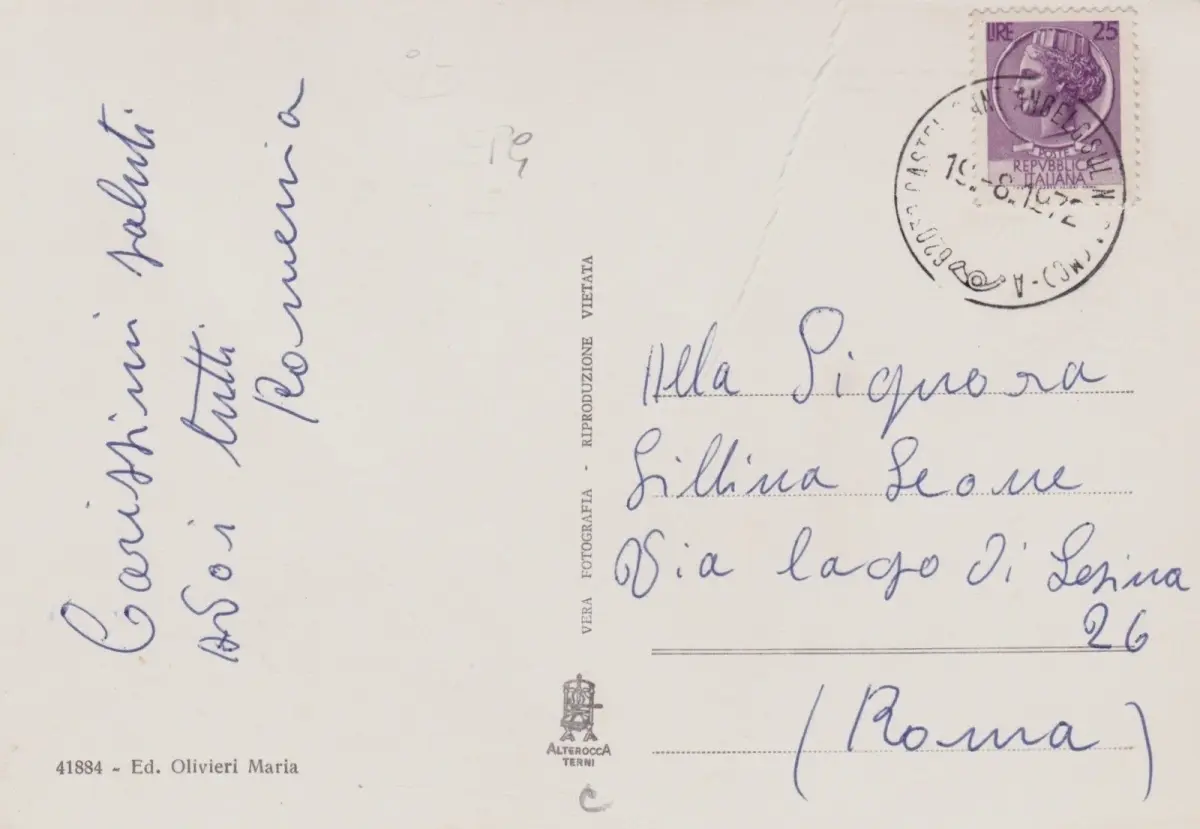 Carissimi saluti
a voi tutti
Romena
LIRE 25
POSTE
REPVBBLICA
ITALIANA
CASTEL SANT'ANGELO SUL (MC) - A
19.-8.1972
Alla Signora
Lillina Leone
Via lago di Lesina
26
(Roma)
VERA FOTOGRAFIA - RIPRODUZIONE VIETATA
ALTEROCCA
TERNI
41884 - Ed. Olivieri Maria